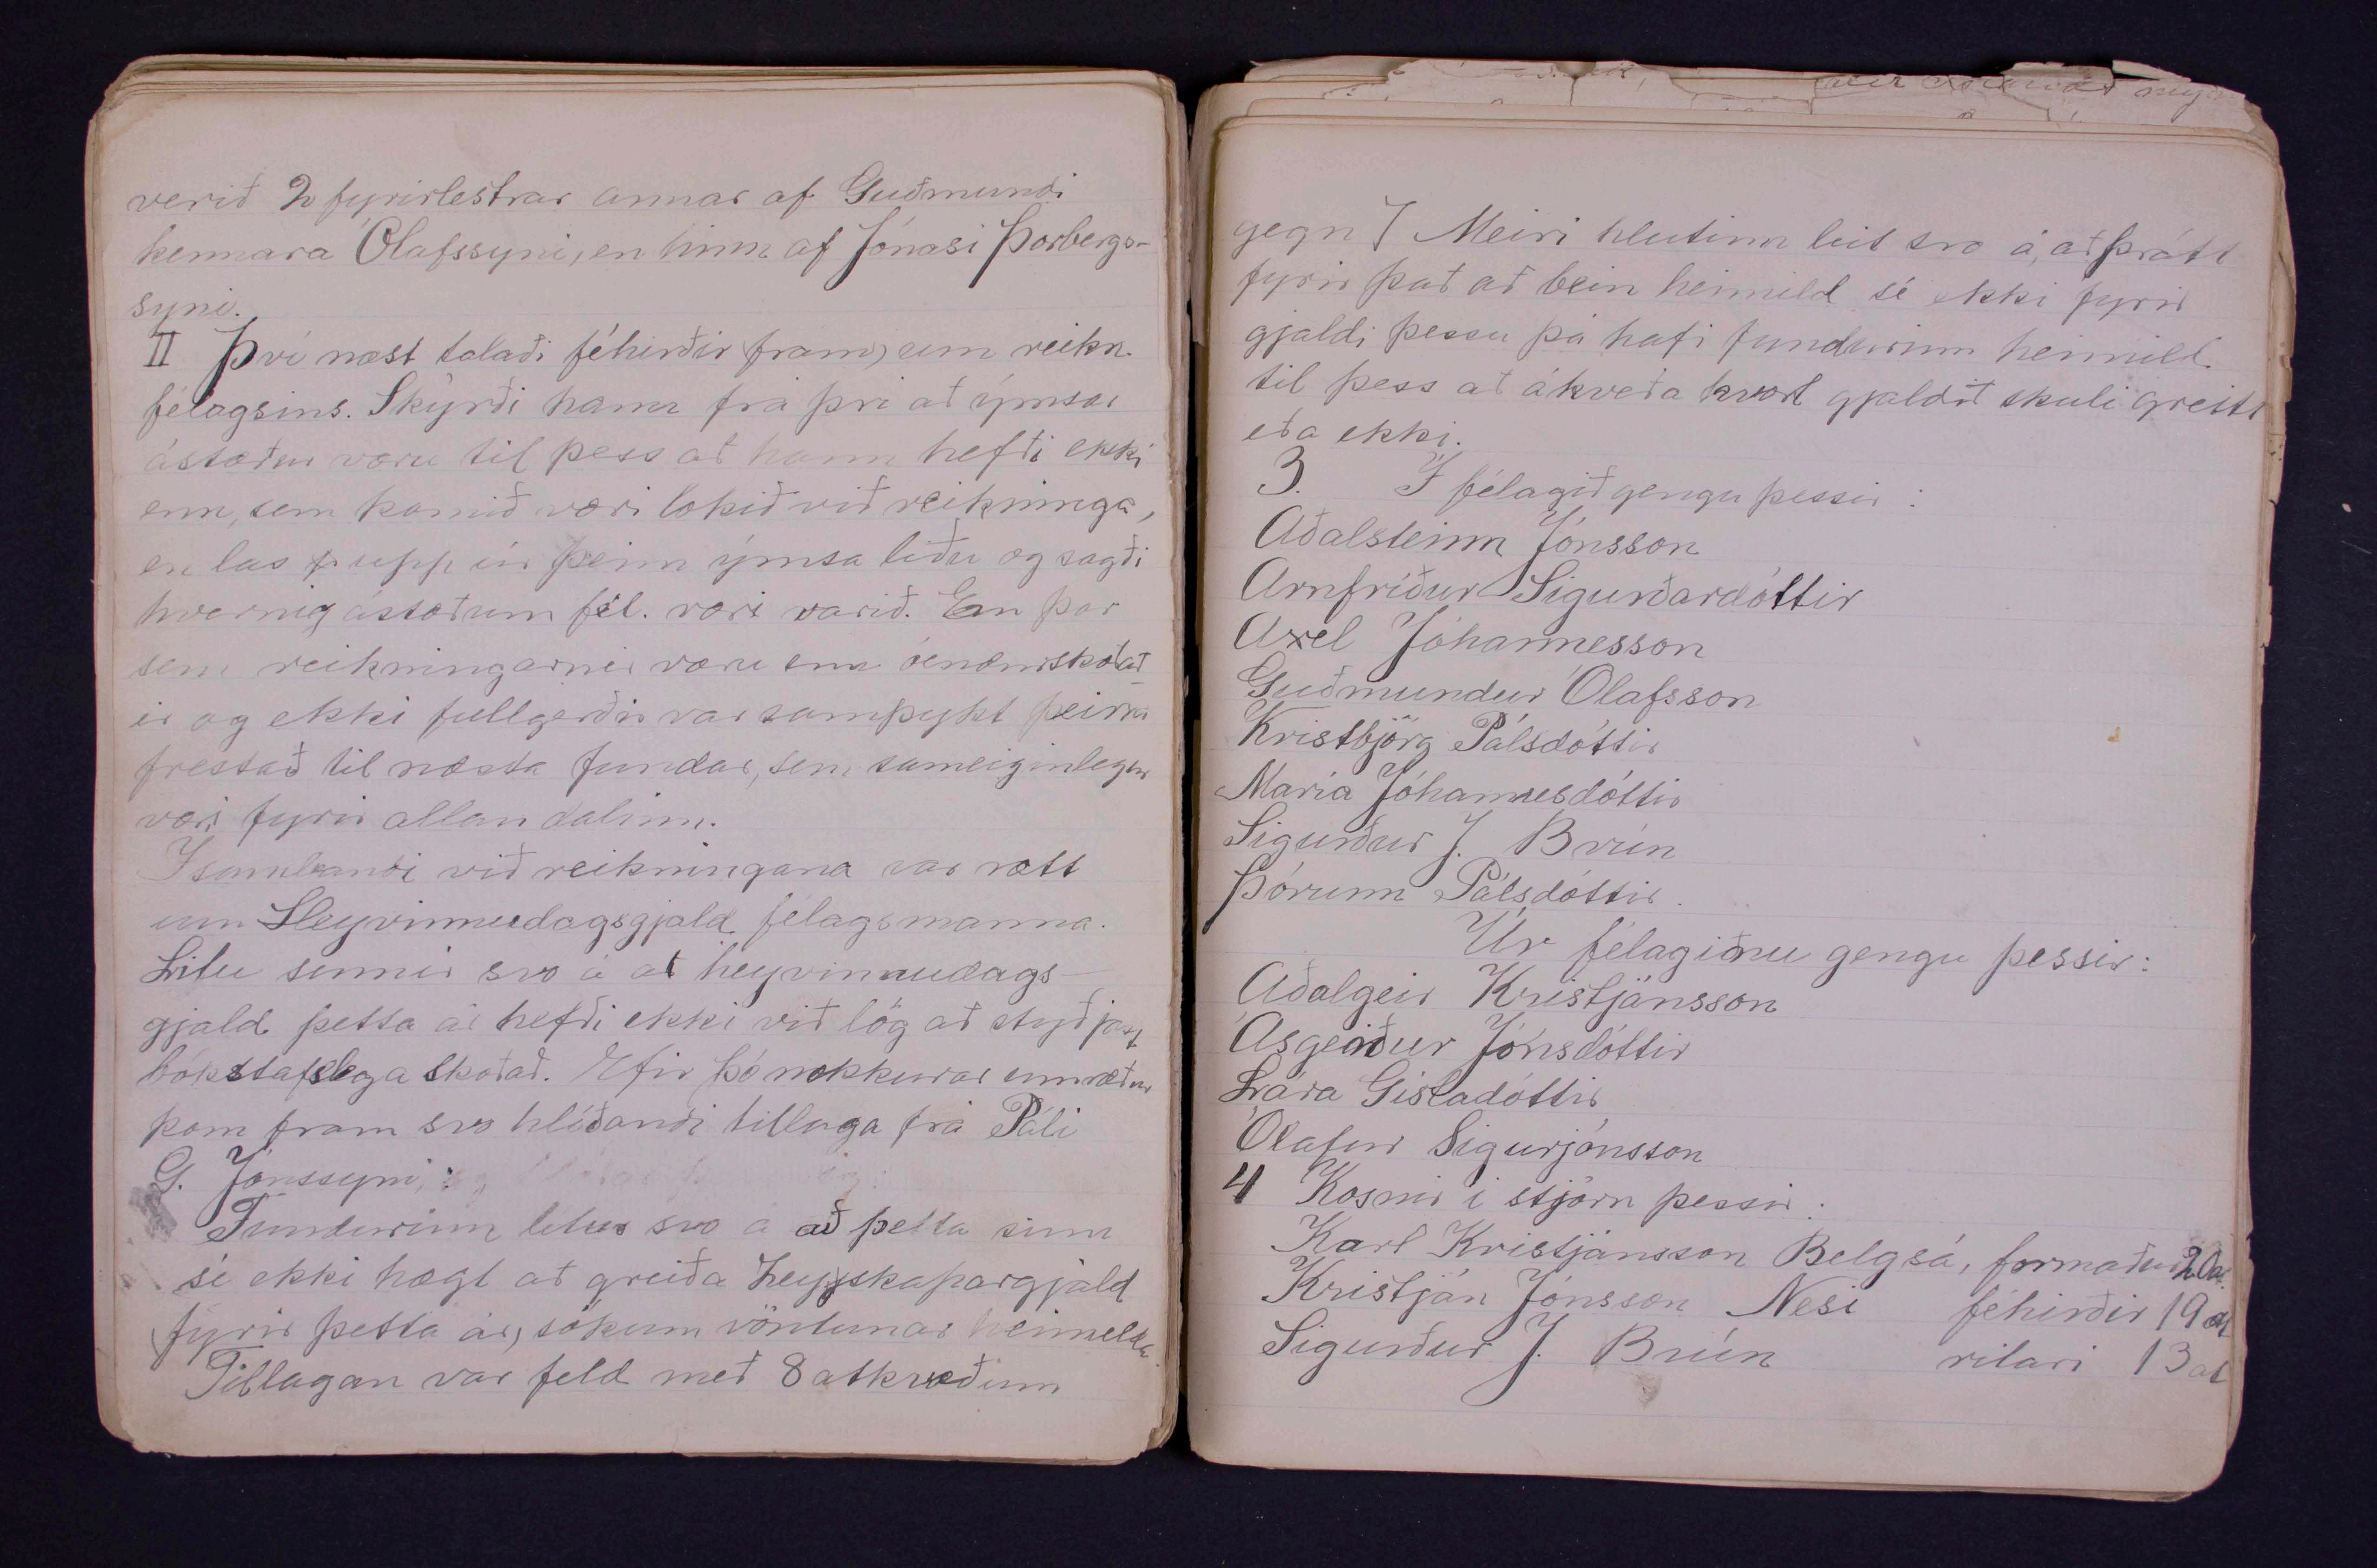 verið 2 fyrirlestrar annar af Guðmundi
kennara Ólafssyni, en hinn af Jónasi Þorbergs-
syni.
II Því næst talaði féhirðir fram, um reikn.
félagsins. Skýrði hann frá því að ýmsar
ástæður væru til þess að hann hefði ekki
enn, sem komið væri lokið við reikninga,
en las upp úr þeim ýmsa liðu og sagði
hvernig ástæðum fél. væri varið. En þar
sem reikningarnir væru enn óendurskoðað-
ir og ekki fullgerðir var samþykt þeirra
frestað til næsta fundar, sem sameiginlegur
væri fyrir allan dalinn.
Í sambandi við reikningana var rætt
um Heyvinnudagsgjald félagsmanna.
Litu sumir svo á at heyvinnudags-
gjald þetta ár hefði ekki við lög að styðjast
bókstaflega skoðað. Eftir þó nokkurar umræður
kom fram svo hlíðandi tillaga frá Páli
G. Jónssyni:
Fundurinn lítur svo á að þetta sinn
sé ekki hægt að greiða heyskapargjald
fyrir þetta ár, sökum vöntunar heimelda.
Tillagan var feld með 8 atkvæðum
gegn 7 Meiri hlutinn leit svo á, að þrátt
fyrir það að bein heimild sé ekki fyrir
gjaldi þessu þá hafi fundurinn heimild
til þess at ákveða hvort gjaldið skuli greitt
eða ekki.
3. Í félagið gengu þessir:
Aðalsteinn Jónsson
Arnfríður Sigurðardóttir
Axel Jóhannesson
Guðmundur Ólafsson
Kristbjörg Pálsdóttir
María Jóhannesdóttir
Sigurður J. Brún
Þórunn Pálsdóttir.
Úr félaginu gengu þessir:
Aðalgeir Kristjánsson
Ásgerður Jónsdóttir
Lára Gísladóttir
Ólafur Sigurjónsson
4 Kosnir í stjórn þessir:
Karl Kristjánsson Belgsá, formaður 20 at
Kristján Jónsson Nesi féhirðir 19 at
Sigurður J. Brún ritari 13 at